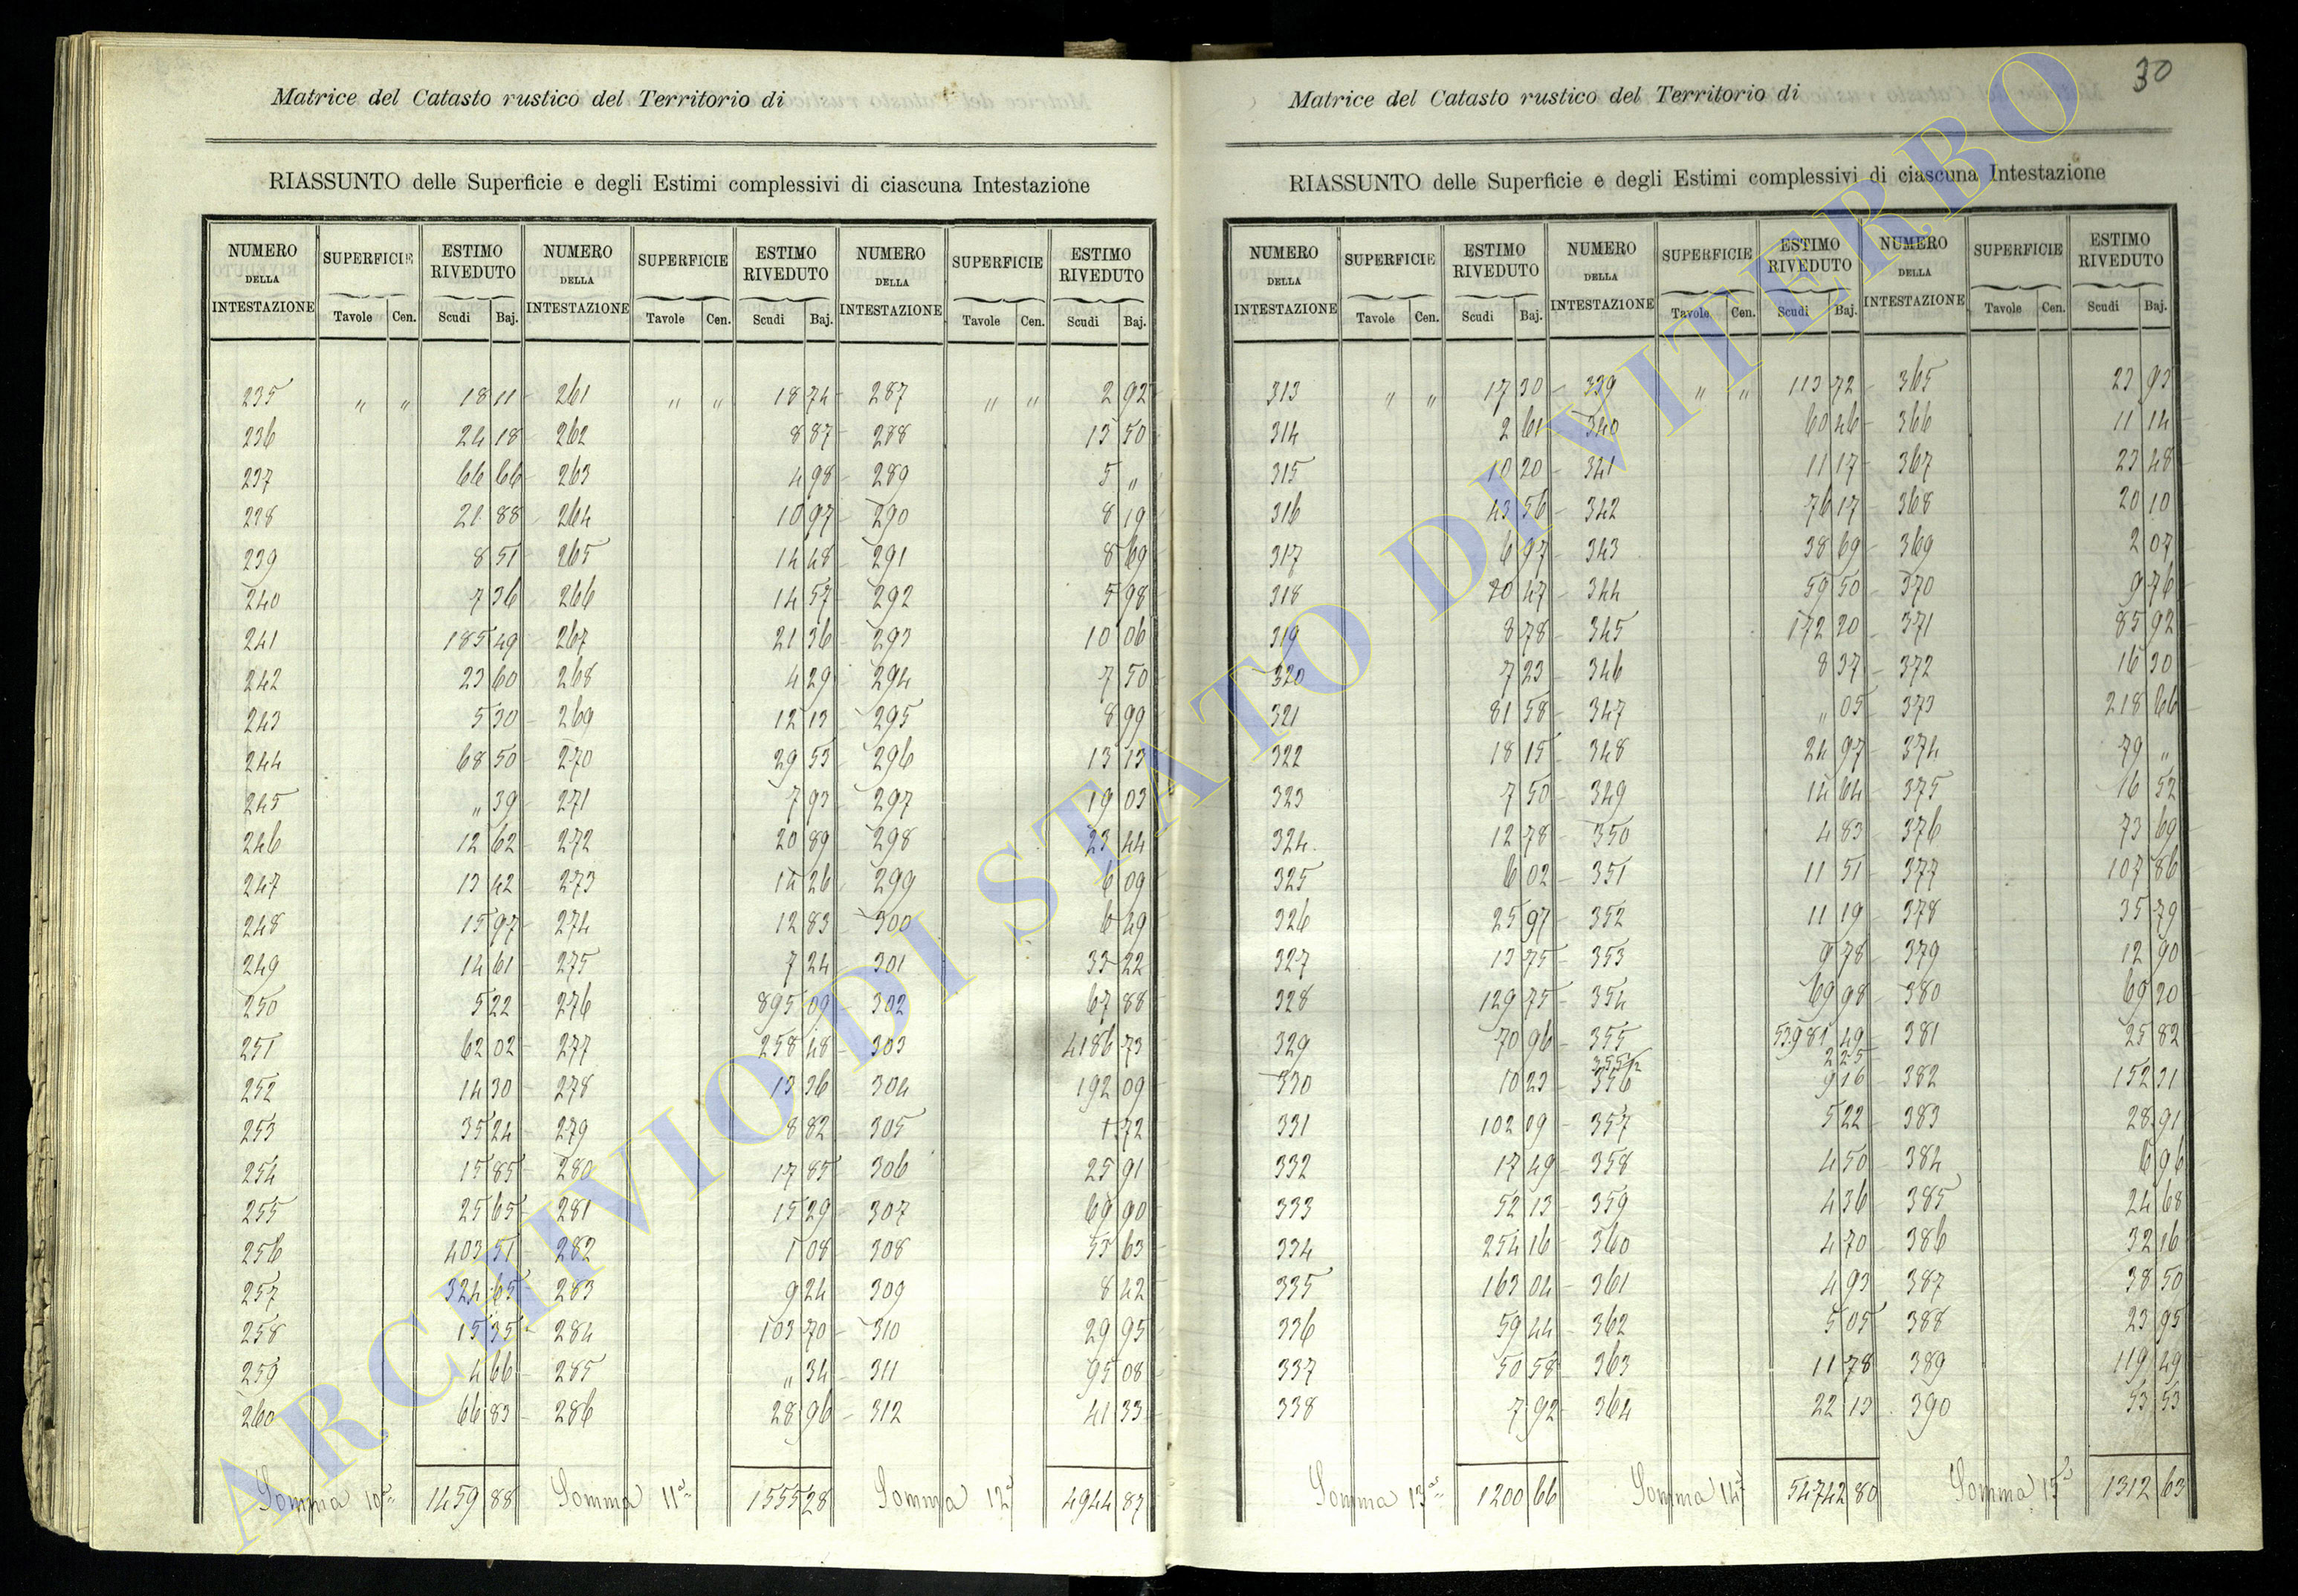 30
Matrice del Catasto rustico del Territorio di
RIASSUNTO delle Superficie e degli Estimi complessivi di ciascuna Intestazione
NUMERO DELLA INTESTAZIONE SUPERFICIE Tavole Cen. ESTIMO RIVEDUTO Scudi Baj. NUMERO DELLA INTESTAZIONE SUPERFICIE Tavole Cen. ESTIMO RIVEDUTO Scudi Baj. NUMERO DELLA INTESTAZIONE SUPERFICIE Tavole Cen. ESTIMO RIVEDUTO Scudi Baj.
235 " " 18 11 261 " " 18 74 287 " " 2 92
236 24 18 262 8 87 288 13 50
237 66 66 263 4 98 289 5 "
238 21 88 264 10 97 290 8 19
239 8 51 265 14 48 291 8 69
240 7 36 266 14 57 292 5 98
241 185 49 267 21 36 293 10 06
242 23 60 268 4 29 294 7 50
243 5 30 269 12 13 295 8 99
244 68 50 270 29 53 296 13 13
245 " 39 271 7 93 297 19 03
246 12 62 272 20 89 298 23 44
247 13 42 273 14 26 299 6 09
248 15 97 274 12 83 300 6 49
249 14 61 275 7 24 301 33 22
250 5 22 276 895 09 302 67 88
251 62 02 277 258 48 303 4186 73
252 14 30 278 13 36 304 192 09
253 35 24 279 8 82 305 1 72
254 15 85 280 17 85 306 25 91
255 25 65 281 15 29 307 69 90
256 403 51 282 1 08 308 53 63
257 324 65 283 9 24 309 8 42
258 15 35 284 103 70 310 29 95
259 4 66 285 " 34 311 95 08
260 66 83 286 28 96 312 41 33
Somma 10a 1459 88 Somma 11a 1555 28 Somma 12a 4944 87
Matrice del Catasto rustico del Territorio di
RIASSUNTO delle Superficie e degli Estimi complessivi di ciascuna Intestazione
NUMERO DELLA INTESTAZIONE SUPERFICIE Tavole Cen. ESTIMO RIVEDUTO Scudi Baj. NUMERO DELLA INTESTAZIONE SUPERFICIE Tavole Cen. ESTIMO RIVEDUTO Scudi Baj. NUMERO DELLA INTESTAZIONE SUPERFICIE Tavole Cen. ESTIMO RIVEDUTO Scudi Baj.
313 " " 17 30 339 " " 113 72 365 23 93
314 2 61 340 60 46 366 11 14
315 10 20 341 11 17 367 23 48
316 43 56 342 76 17 368 20 10
317 6 97 343 38 69 369 2 07
318 20 47 344 59 50 370 9 76
319 8 78 345 172 20 371 85 92
320 7 23 346 8 37 372 16 30
321 81 58 347 " 05 373 218 66
322 18 15 348 24 97 374 79 "
323 7 50 349 14 64 375 16 52
324 12 78 350 4 83 376 73 69
325 6 02 351 11 51 377 107 86
326 25 97 352 11 19 378 35 79
327 13 75 353 9 78 379 12 90
328 129 75 354 69 98 380 69 20
329 70 96 355 53981 49 381 25 82
355/2 2 25
330 10 23 356 9 16 382 152 31
331 102 09 357 5 22 383 28 91
332 17 49 358 4 50 384 6 96
333 52 13 359 4 36 385 24 68
334 254 16 360 4 70 386 32 16
335 163 04 361 4 93 387 38 50
336 59 44 362 5 05 388 23 95
337 50 58 363 11 78 389 119 49
338 7 92 364 22 13 390 53 53
Somma 13a 1200 66 Somma 14a 54742 80 Somma 15a 1312 63
ARCHIVIO DI STATO DI VITERBO